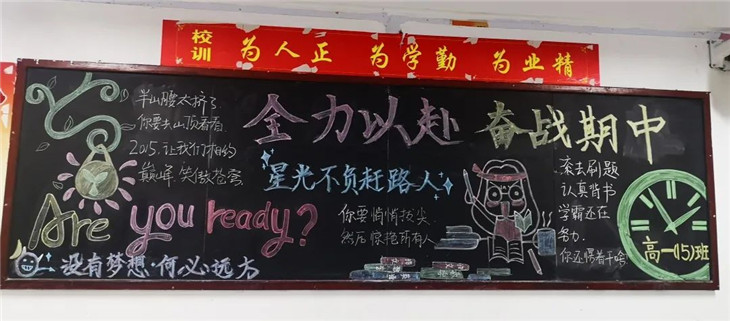 校训 为人正 为学勤 为业精
全力以赴 奋战期中
半山腰太挤了
你要去山顶看看
2015.让我们相约
巅峰.笑傲苍穹
星光不负赶路人
Are you ready?
你要悄悄拔尖
然后惊艳所有人
没有梦想·何必远方
滚去刷题
认真背书
学霸还在
努力.
你还愣着干啥
高一(15)班